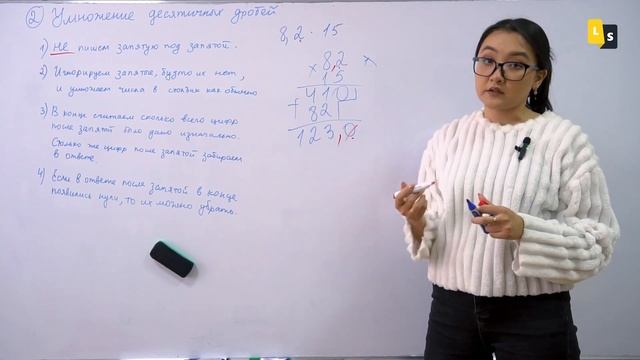 ② Умножение десятичных дробей
1) Не пишем запятую под запятой.
2) Игнорируем запятые, будто их нет,
и умножаем числа в столбик как обычно
3) В конце считаем сколько всего цифр
после запятой было дано изначально.
Столько же цифр после запятой забираем
в ответе.
4) Если в ответе после запятой в конце
появились нули, то их можно убрать.
8,2 · 15
× 8,2
15
+ 410
82
123,0
L S